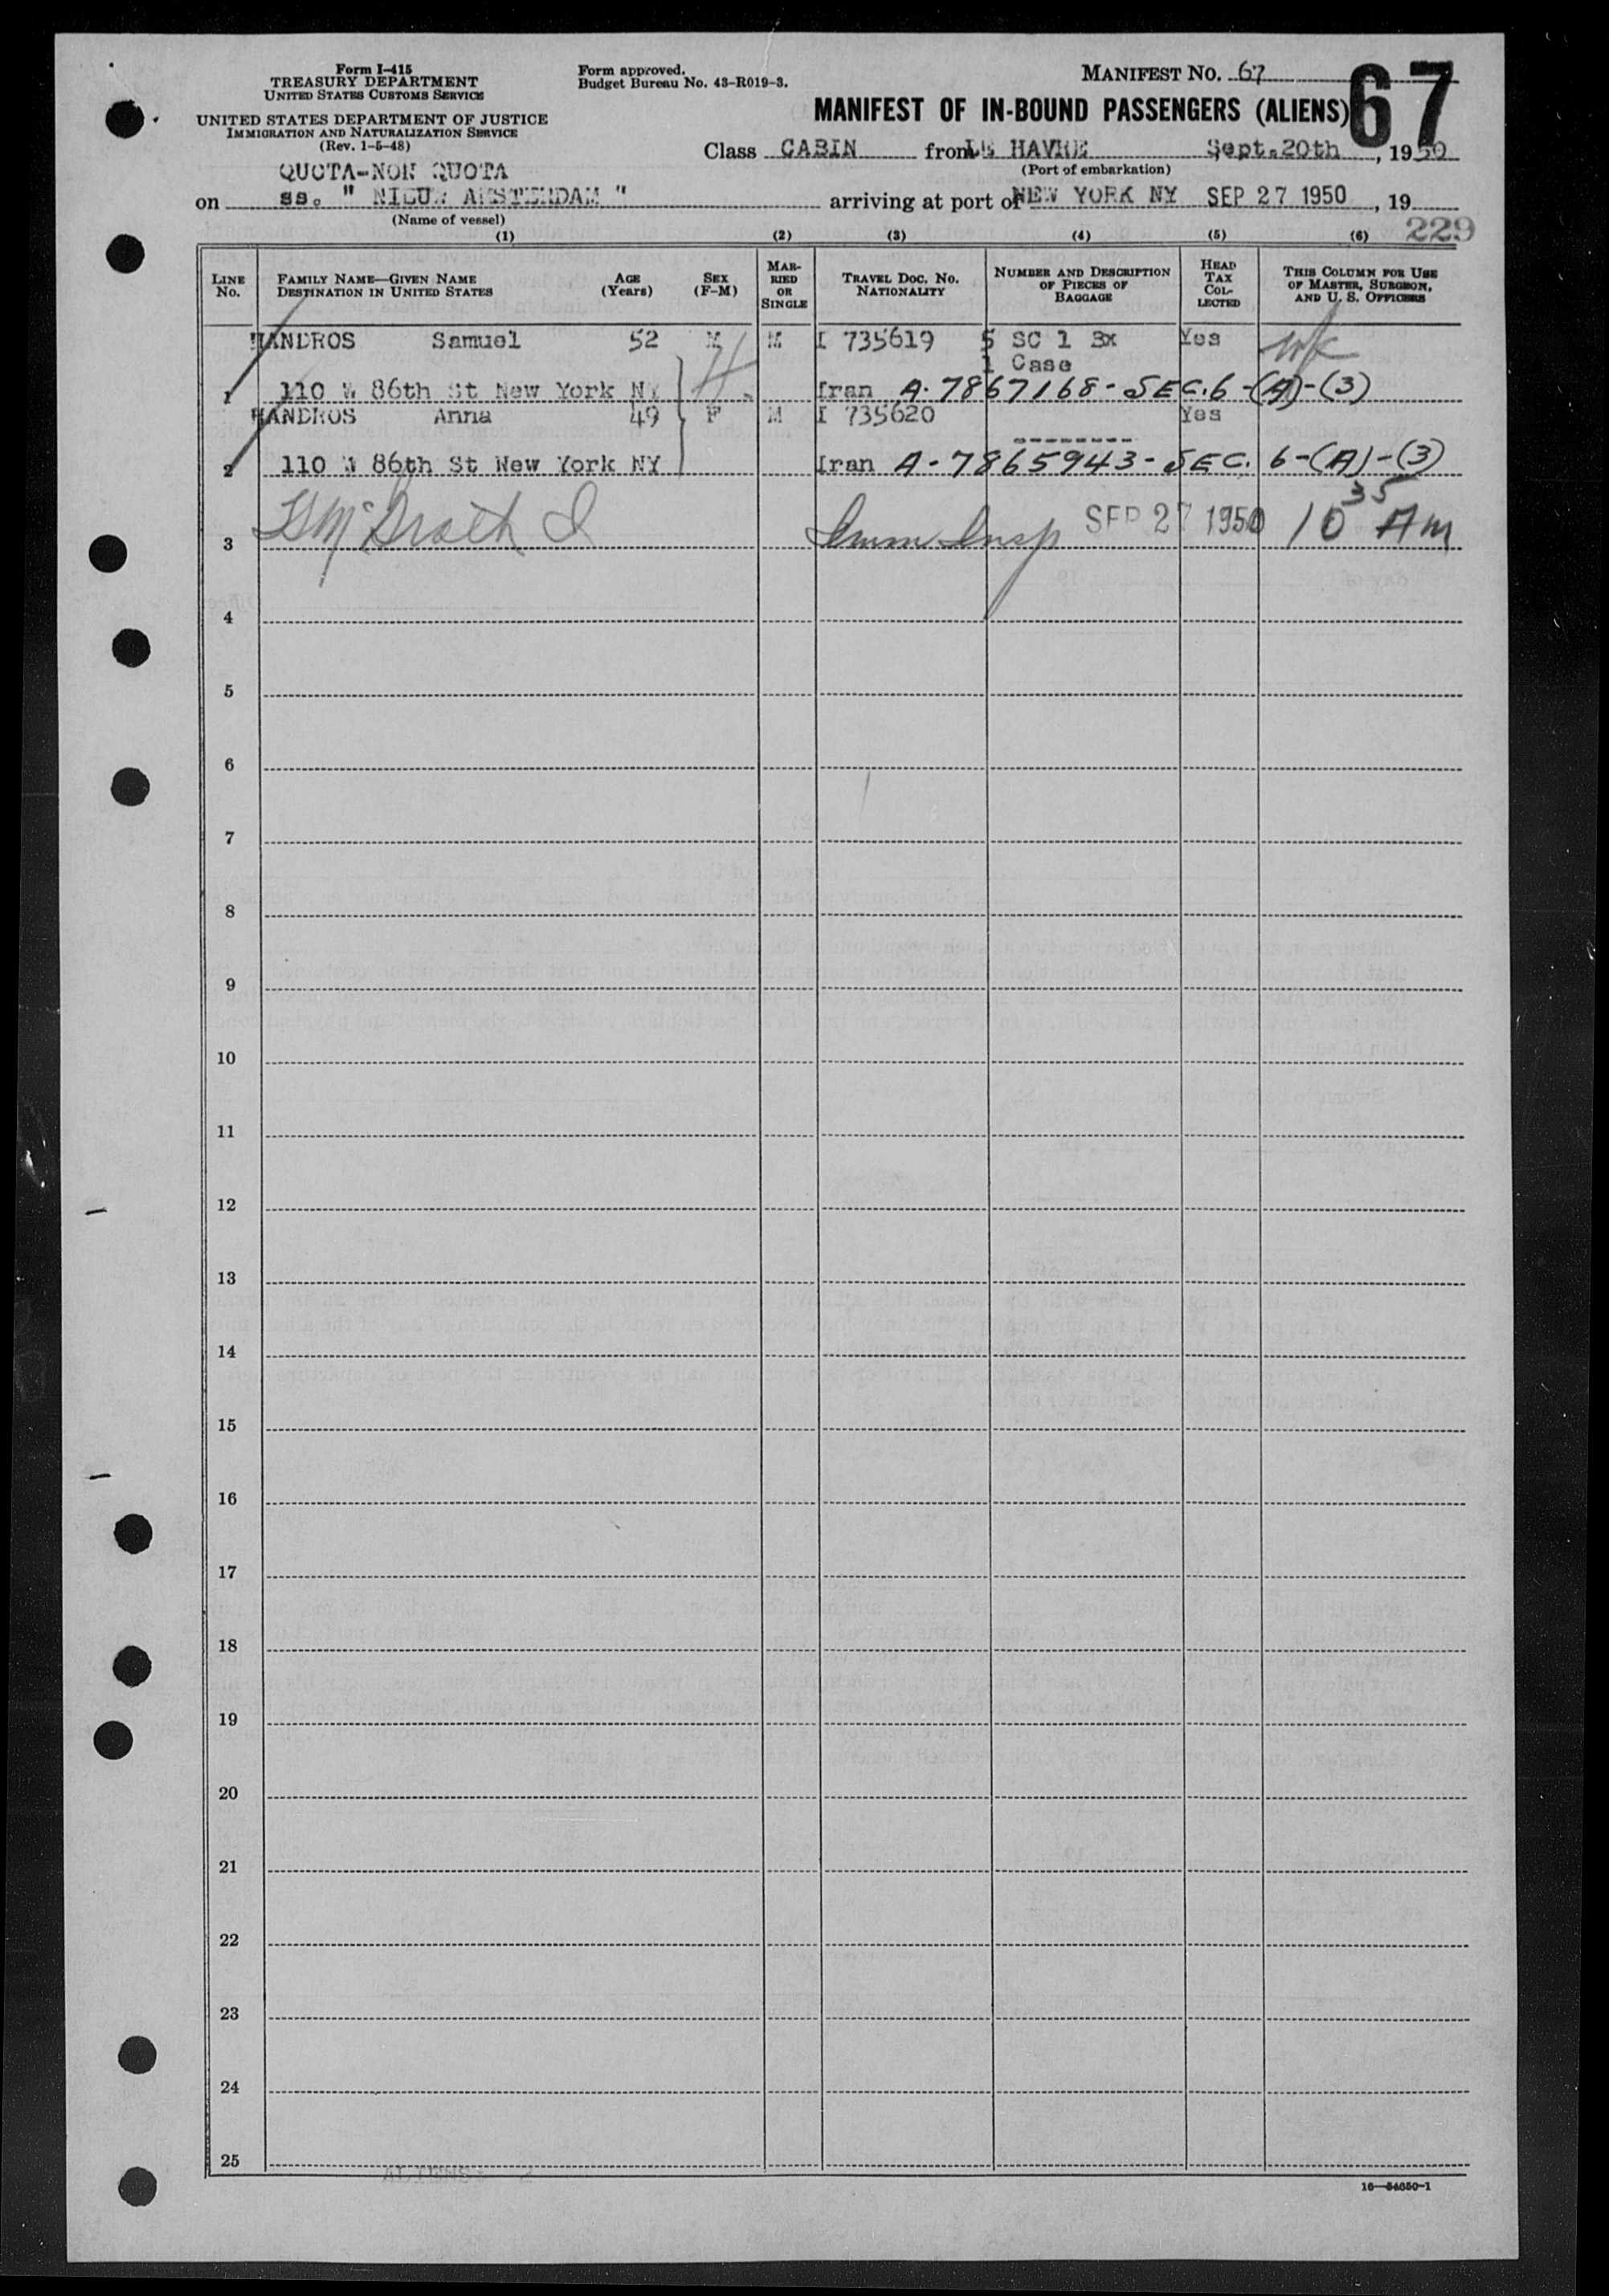 Form I-415
TREASURY DEPARTMENT
UNITED STATES CUSTOMS SERVICE
UNITED STATES DEPARTMENT OF JUSTICE
IMMIGRATION AND NATURALIZATION SERVICE
(Rev. 1-5-48)
Form approved.
Budget Bureau No. 43-R019-3.
MANIFEST NO. 67
67
MANIFEST OF IN-BOUND PASSENGERS (ALIENS)
Class CABIN from LE HAVRE Sept. 20th, 1950
(Port of embarkation)
QUOTA-NON QUOTA
on ss. " NIEUW AMSTERDAM " arriving at port of NEW YORK NY SEP 27 1950, 19
(Name of vessel)
229
(1) (2) (3) (4) (5) (6)
LINE No. FAMILY NAME—GIVEN NAME DESTINATION IN UNITED STATES AGE (Years) SEX (F-M) MARRIED OR SINGLE TRAVEL DOC. NO. NATIONALITY NUMBER AND DESCRIPTION OF PIECES OF BAGGAGE HEAD TAX COLLECTED THIS COLUMN FOR USE OF MASTER, SURGEON, AND U. S. OFFICERS
ANDROS Samuel 52 M M I 735619 5 SC 1 Bx Yes
1 Case
1 110 W 86th St New York NY Iran A-7867168-SEC.6-(A)-(3)
ANDROS Anna 49 F M I 735620 -------- Yes
2 110 W 86th St New York NY Iran A-7865943-SEC. 6-(A)-(3)
3 Imm Insp SEP 27 1950 10 35 AM
4
5
6
7
8
9
10
11
12
13
14
15
16
17
18
19
20
21
22
23
24
25
16—54650-1